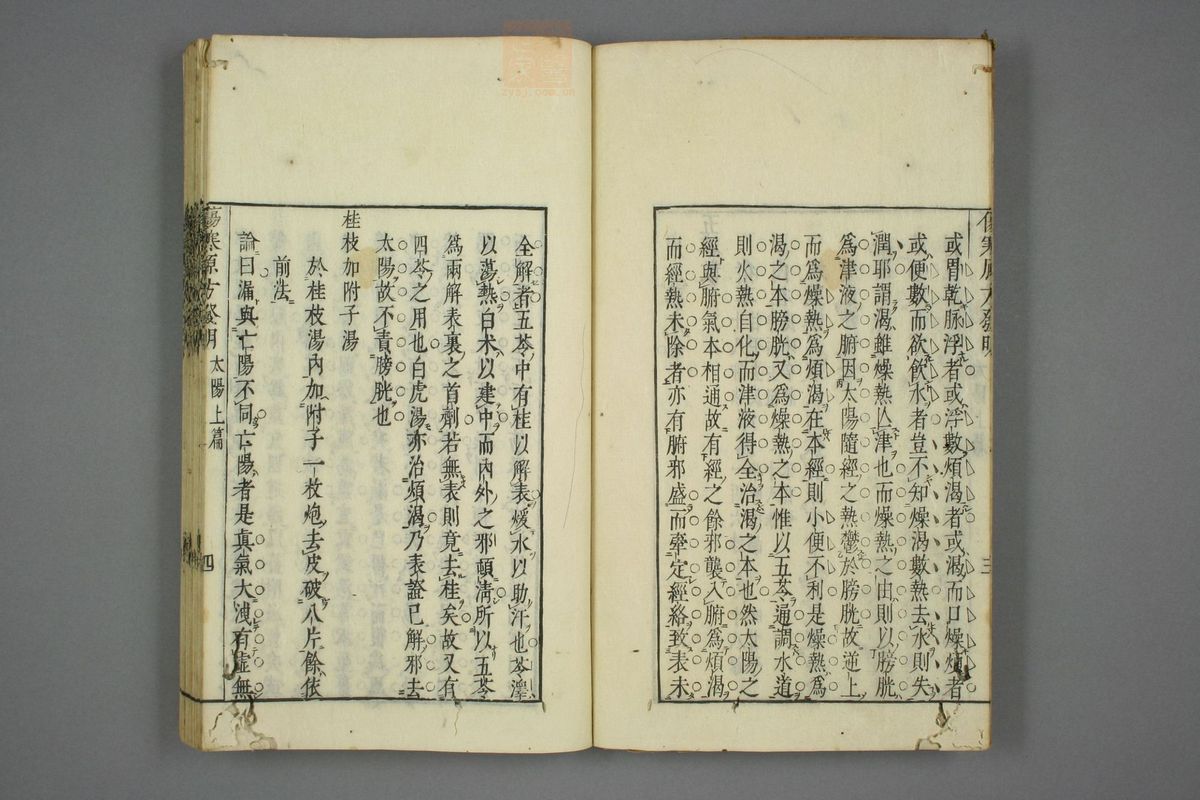 傷寒原方發明
三
或胃乾脉浮者或浮數煩渴者或渴而口燥煩者
或便數而欲飲水者豈不知燥渴數熱去水則失
潤耶謂渴雖燥熱亾津也而燥熱之由則以膀胱
爲津液之腑因太陽隨經之熱鬱於膀胱故逆上
而爲燥熱爲煩渴在本經則小便不利是燥熱爲
渴之本膀胱又爲燥熱之本惟以五苓通調水道
則火熱自化而津液得全治渴之本也然太陽之
經與腑氣本相通故有經之餘邪襲入腑爲煩渴
而經熱未除者亦有腑邪盛而牽定經絡致表未
全解者五苓中有桂以解表煖水以助汗也苓澤
以蕩熱白术以建中而內外之邪頓淸所以五苓
爲兩解表裏之首劑若無表則竟去桂矣故又有
四苓之用也白虎湯亦治煩渴乃表證已解邪去
太陽故不責膀胱也
桂枝加附子湯
於桂枝湯內加附子一枚炮去皮破八片餘依
前法
論曰漏與亡陽不同亡陽者是眞氣大洩有虛無
傷寒原方發明 太陽上篇
四
zysj.com.cn